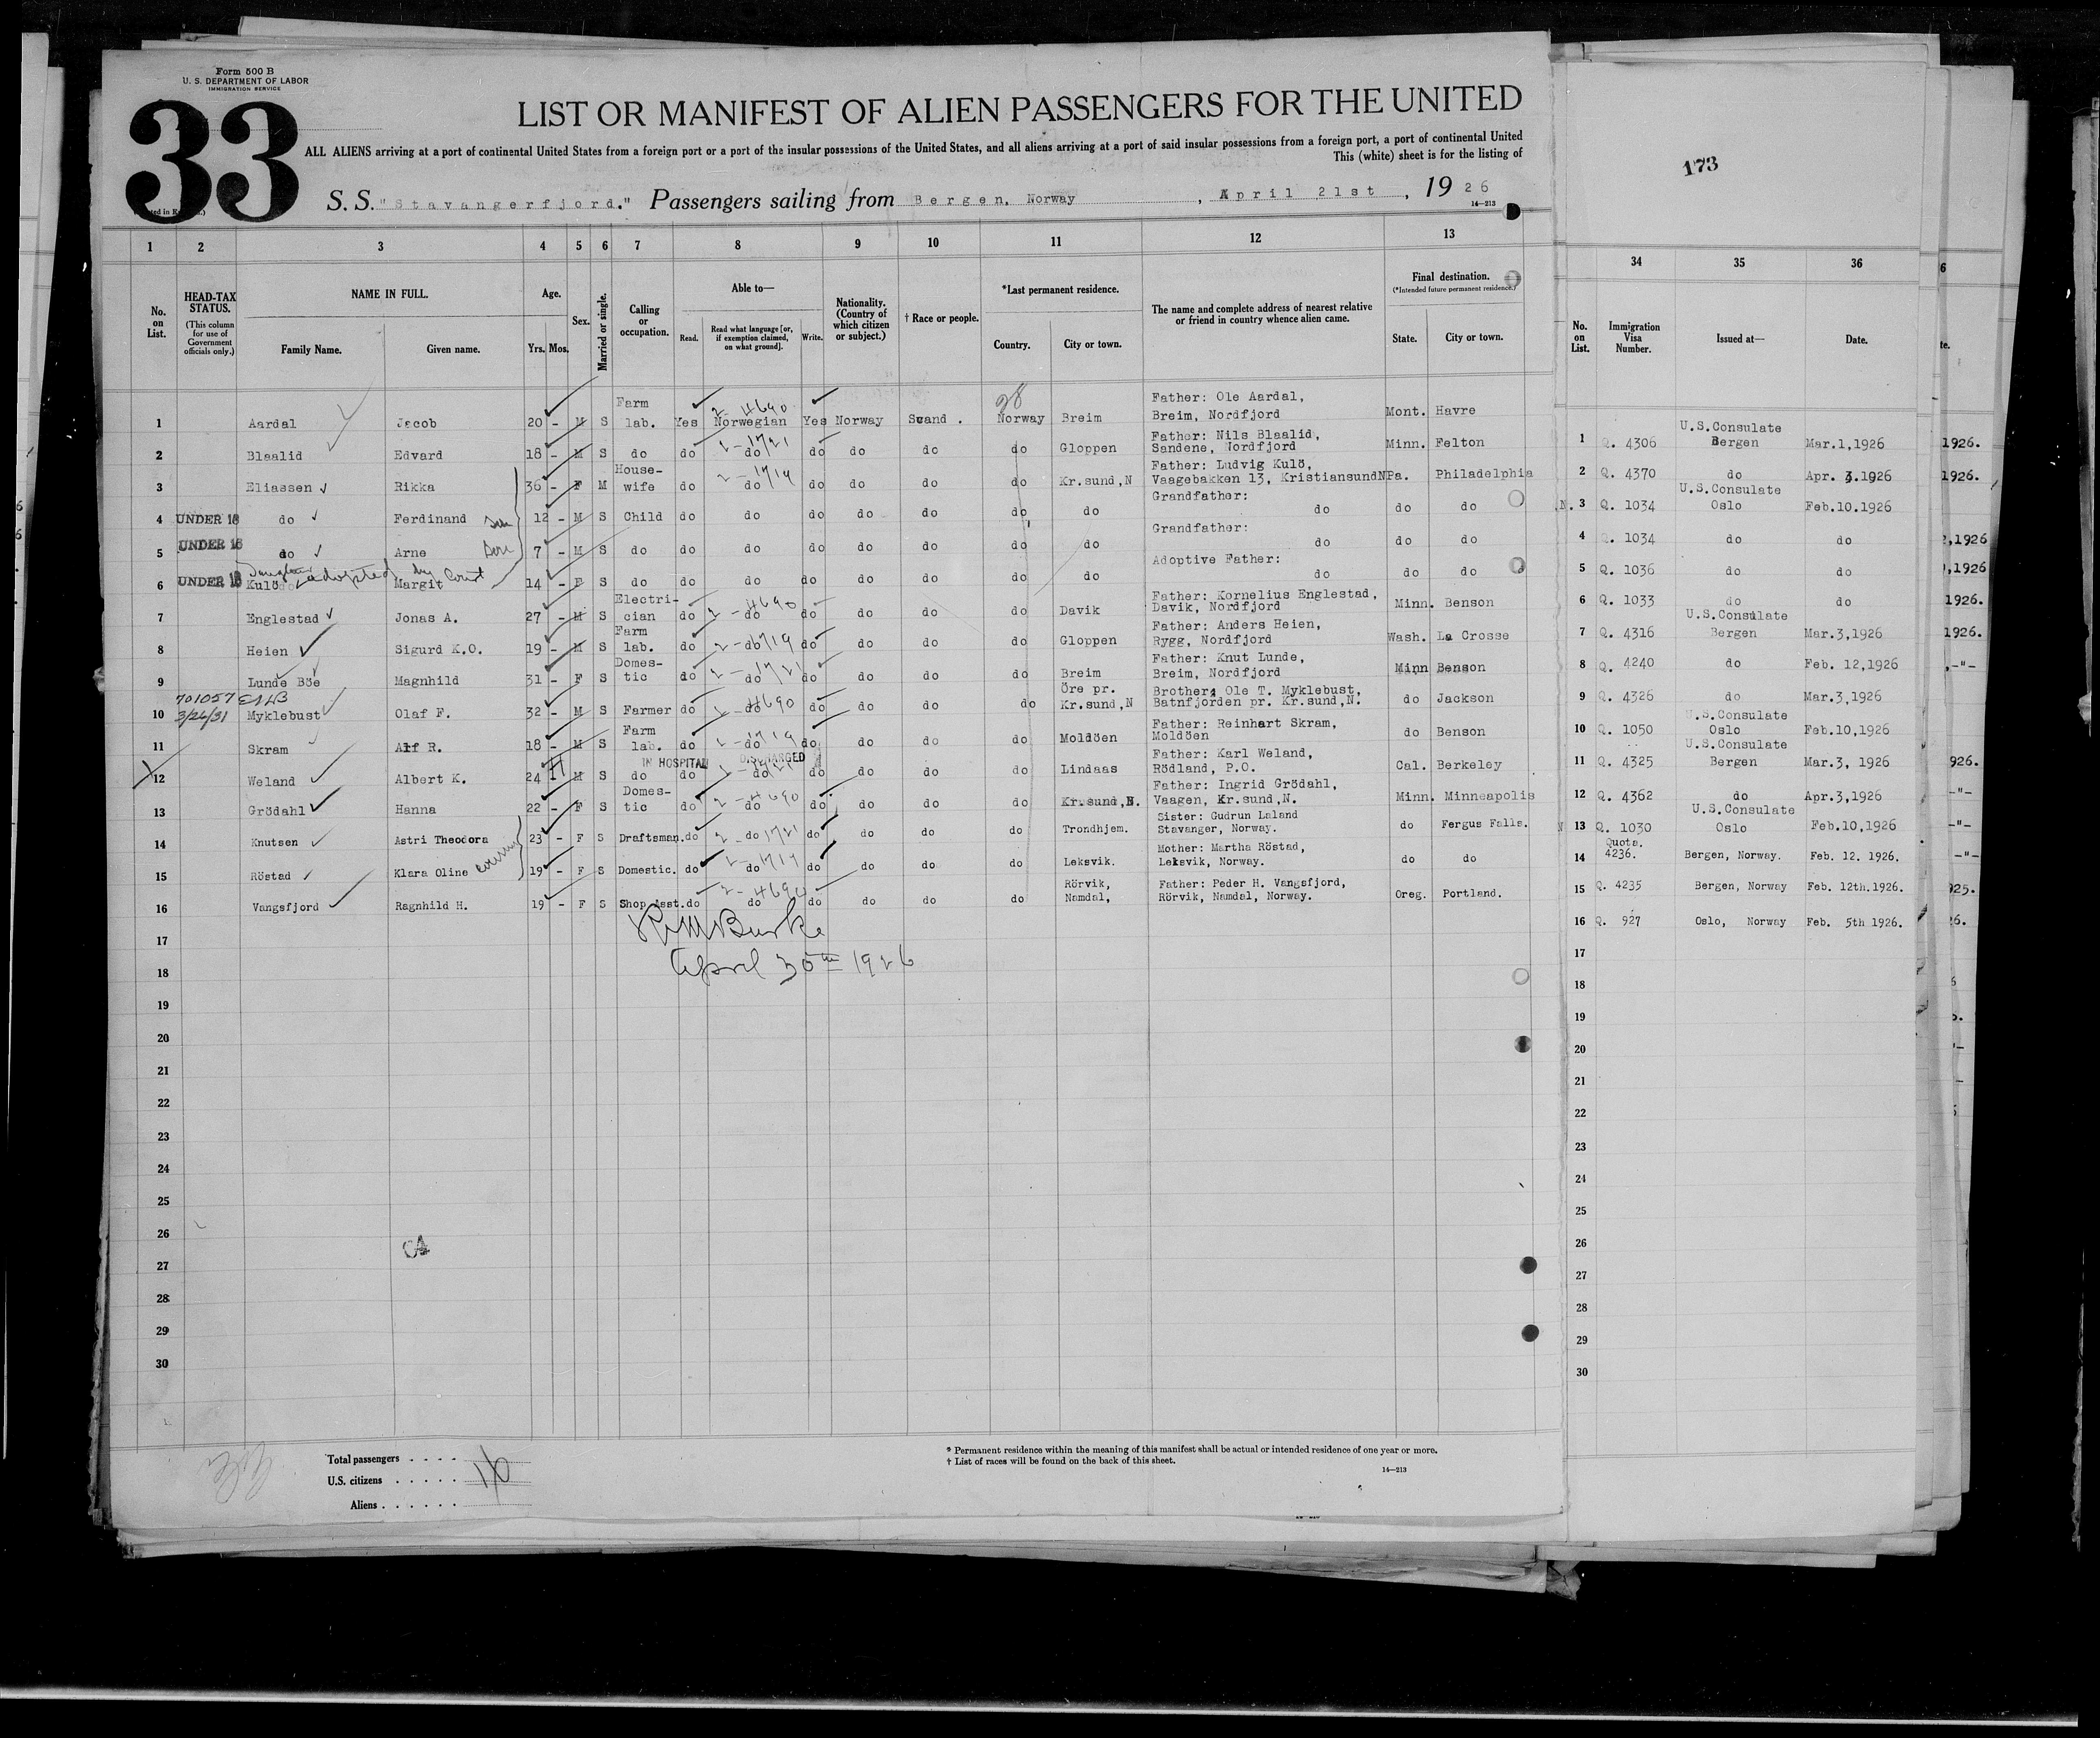 Form 500 B
U. S. DEPARTMENT OF LABOR
IMMIGRATION SERVICE
33
LIST OR MANIFEST OF ALIEN PASSENGERS FOR THE UNITED
ALL ALIENS arriving at a port of continental United States from a foreign port or a port of the insular possessions of the United States, and all aliens arriving at a port of said insular possessions from a foreign port, a port of continental United
This (white) sheet is for the listing of
S. S. "Stavangerfjord." Passengers sailing from Bergen, Norway, April 21st, 1926
14—213
173
1 2 3 4 5 6 7 8 9 10 11 12 13 34 35 36
No. on List.
HEAD-TAX STATUS.
(This column for use of Government officials only.)
NAME IN FULL.
Family Name. Given name.
Age.
Yrs. Mos.
Sex.
Married or single.
Calling or occupation.
Able to—
Read. Read what language [or, if exemption claimed, on what ground]. Write.
Nationality. (Country of which citizen or subject.)
† Race or people.
*Last permanent residence.
Country. City or town.
The name and complete address of nearest relative or friend in country whence alien came.
Final destination.
(*Intended future permanent residence.)
State. City or town.
No. on List.
Immigration Visa Number.
Issued at—
Date.
98
1 Aardal Jacob 20 - M S Farm lab. Yes Norwegian 2-4690 Yes Norway Scand. Norway Breim Father: Ole Aardal, Breim, Nordfjord Mont. Havre 1 Q. 4306 U.S.Consulate Bergen Mar.1,1926
2 Blaalid Edvard 18 - M S do do do 2-1721 do do do do Gloppen Father: Nils Blaalid, Sandene, Nordfjord Minn. Felton 2 Q. 4370 do Apr. 3.1926
3 Eliassen Rikka 36 - F M House-wife do do 2-1719 do do do do Kr.sund,N Father: Ludvig Kulö, Vaagebakken 13, KristiansundN Pa. Philadelphia 3 Q. 1034 U.S.Consulate Oslo Feb.10.1926
4 UNDER 16 do Ferdinand Son 12 - M S Child do do do do do do do Grandfather: do do do 4 Q. 1034 do do
5 UNDER 16 do Arne Son 7 - M S do do do do do do do do Grandfather: do do do 5 Q. 1036 do do
Daughter adopted by Court
6 UNDER 16 Kulö Margit 14 - F S do do do do do do do do Adoptive Father: do do do 6 Q. 1033 do do
7 Englestad Jonas A. 27 - M S Electri-cian do do 2-4690 do do do do Davik Father: Kornelius Englestad, Davik, Nordfjord Minn. Benson 7 Q. 4316 U.S.Consulate Bergen Mar.3,1926
8 Heien Sigurd K.O. 19 - M S Farm lab. do do 2-1719 do do do do Gloppen Father: Anders Heien, Rygg, Nordfjord Wash. La Crosse 8 Q. 4240 do Feb. 12,1926
9 Lunde Böe Magnhild 31 - F S Domes-tic do do 2-1721 do do do do Breim Father: Knut Lunde, Breim, Nordfjord Minn Benson 9 Q. 4326 do Mar.3,1926
701057
3/26/31
10 Myklebust Olaf F. 32 - M S Farmer do do 2-4690 do do do do Öre pr. Kr.sund,N Brother: Ole T. Myklebust, Batnfjorden pr. Kr.sund,N. do Jackson 10 Q. 1050 U.S.Consulate Oslo Feb.10,1926
11 Skram Alf R. 18 - M S Farm lab. do do 2-1719 do do do do Moldöen Father: Reinhart Skram, Moldöen do Benson 11 Q. 4325 U.S.Consulate Bergen Mar.3, 1926
IN HOSPITAL DISCHARGED
12 Weland Albert K. 24 M S do do do do do do do Lindaas Father: Karl Weland, Rödland, P.O. Cal. Berkeley 12 Q. 4362 do Apr.3,1926
13 Grödahl Hanna 22 - F S Domes-tic do do 2-4690 do do do do Kr.sund,N. Father: Ingrid Grödahl, Vaagen, Kr.sund,N. Minn. Minneapolis 13 Q. 1030 U.S.Consulate Oslo Feb.10,1926
14 Knutsen Astri Theodora 23 - F S Draftsman. do do 2-1721 do do do do Trondhjem. Sister: Gudrun Laland Stavanger, Norway. do Fergus Falls. 14 Quota. 4236. Bergen, Norway. Feb. 12. 1926.
15 Röstad Klara Oline cousin 19 - F S Domestic. do do 2-1719 do do do do Leksvik. Mother: Martha Röstad, Leksvik, Norway. do do 15 Q. 4235 Bergen, Norway Feb. 12th.1926.
16 Vangsfjord Ragnhild H. 19 - F S Shop Asst. do do 2-4690 do do do do Rörvik, Namdal, Father: Peder H. Vangsfjord, Rörvik, Namdal, Norway. Oreg. Portland. 16 Q. 927 Oslo, Norway Feb. 5th 1926.
RM Burke
April 30th 1926
17 17
18 18
19 19
20 20
21 21
22 22
23 23
24 24
25 25
26 26
27 27
28 28
29 29
30 30
Total passengers . . . .
U.S. citizens . . . . .
Aliens . . . . . .
16
* Permanent residence within the meaning of this manifest shall be actual or intended residence of one year or more.
† List of races will be found on the back of this sheet.
14—213